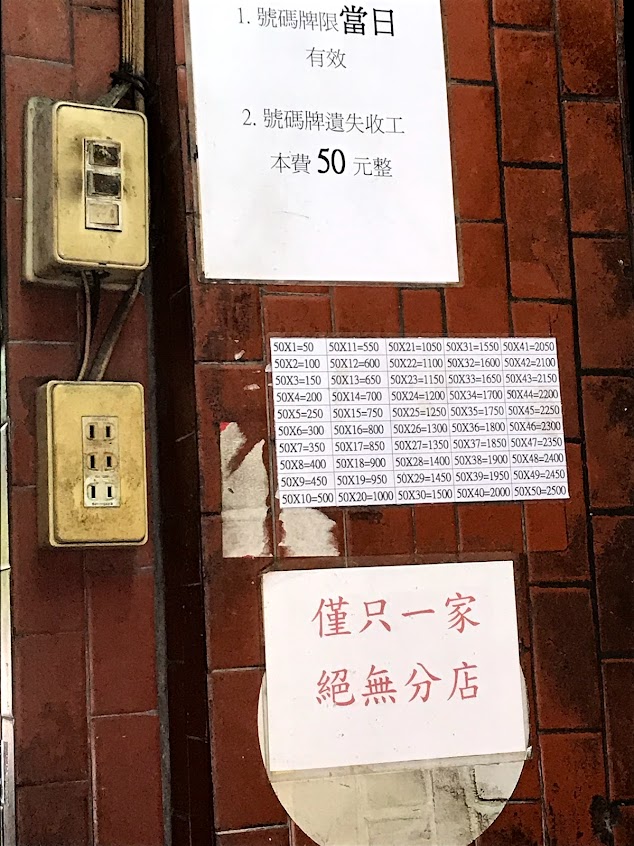 1. 號碼牌限當日
有效
2. 號碼牌遺失收工
本費 50 元整
50X1=50 50X11=550 50X21=1050 50X31=1550 50X41=2050
50X2=100 50X12=600 50X22=1100 50X32=1600 50X42=2100
50X3=150 50X13=650 50X23=1150 50X33=1650 50X43=2150
50X4=200 50X14=700 50X24=1200 50X34=1700 50X44=2200
50X5=250 50X15=750 50X25=1250 50X35=1750 50X45=2250
50X6=300 50X16=800 50X26=1300 50X36=1800 50X46=2300
50X7=350 50X17=850 50X27=1350 50X37=1850 50X47=2350
50X8=400 50X18=900 50X28=1400 50X38=1900 50X48=2400
50X9=450 50X19=950 50X29=1450 50X39=1950 50X49=2450
50X10=500 50X20=1000 50X30=1500 50X40=2000 50X50=2500
僅只一家
絕無分店